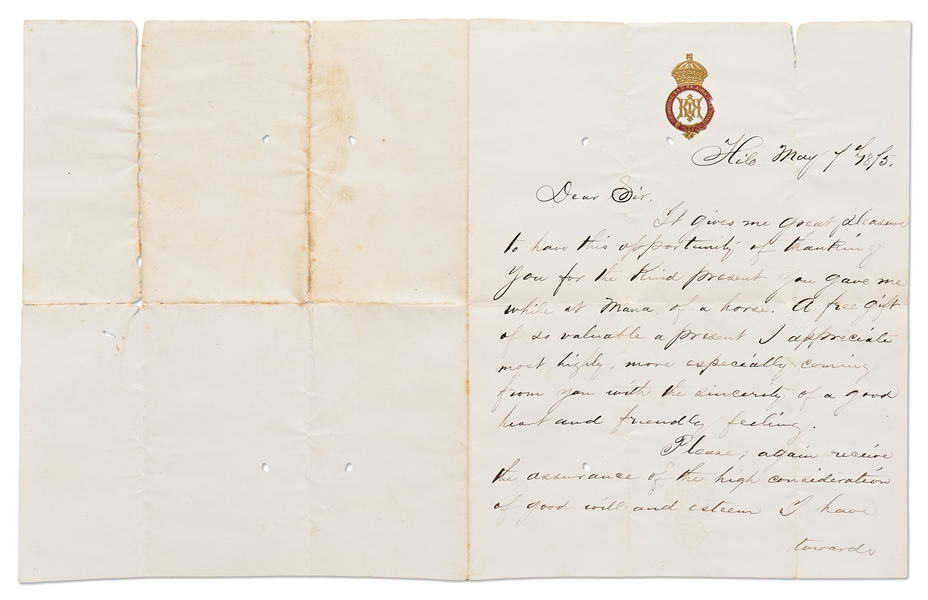 Hilo May 7th 1875.
Dear Sir.
It gives me great pleasure
to have this opportunity of thanking
you for the kind present you gave me
while at Mana of a horse. A free gift
of so valuable a present I appreciate
most highly, more especially coming
from you with the sincerity of a good
heart and friendly feeling.
Please, again receive
the assurance of the high consideration
of good will and esteem I have
towards